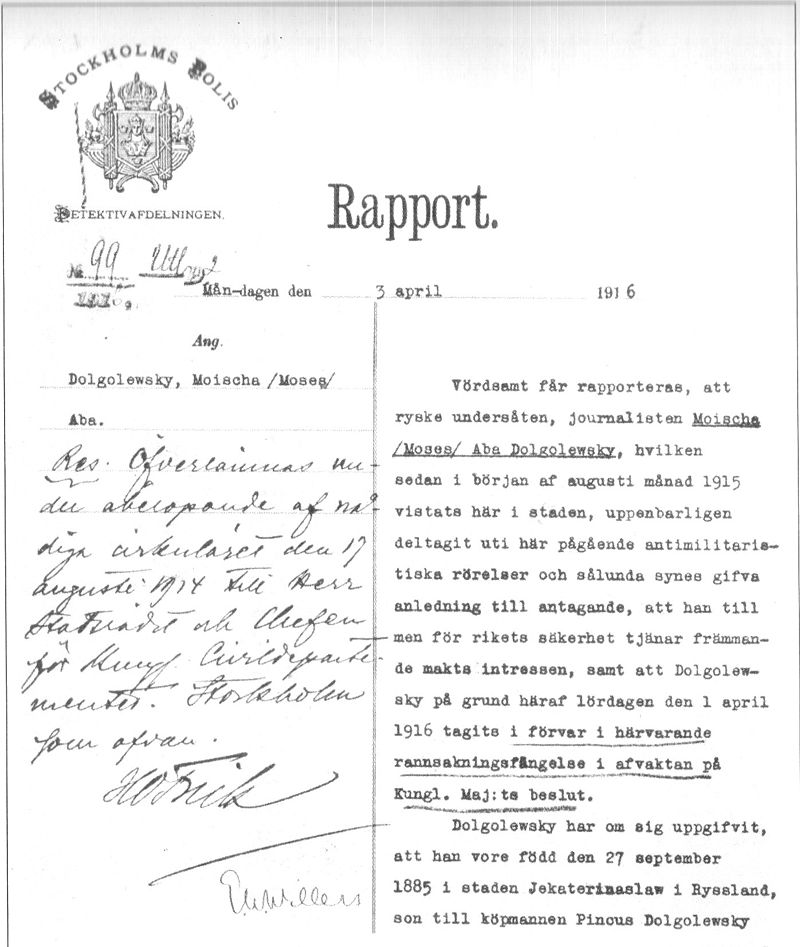 STOCKHOLMS POLIS
DETEKTIVAFDELNINGEN.
Rapport.
№ 99
Mån-dagen den 3 april 1916
Ang.
Dolgolewsky, Moischa /Moses/
Aba.
Res. Öfverlämnas un-
der åberopande af nå-
diga cirkuläret den 17
augusti 1914 till Herr
Statsrådet och Chefen
för Kungl. Civildeparte-
mentet. Stockholm
som ofvan.
Vördsamt får rapporteras, att
ryske undersåten, journalisten Moischa
/Moses/ Aba Dolgolewsky, hvilken
sedan i början af augusti månad 1915
vistats här i staden, uppenbarligen
deltagit uti här pågående antimilitaris-
tiska rörelser och sålunda synes gifva
anledning till antagande, att han till
men för rikets säkerhet tjänar främman-
de makts intressen, samt att Dolgolew-
sky på grund häraf lördagen den 1 april
1916 tagits i förvar i härvarande
rannsakningsfängelse i afvaktan på
Kungl. Maj:ts beslut.
Dolgolewsky har om sig uppgifvit,
att han vore född den 27 september
1885 i staden Jekaterinaslaw i Ryssland,
son till köpmannen Pincus Dolgolewsky